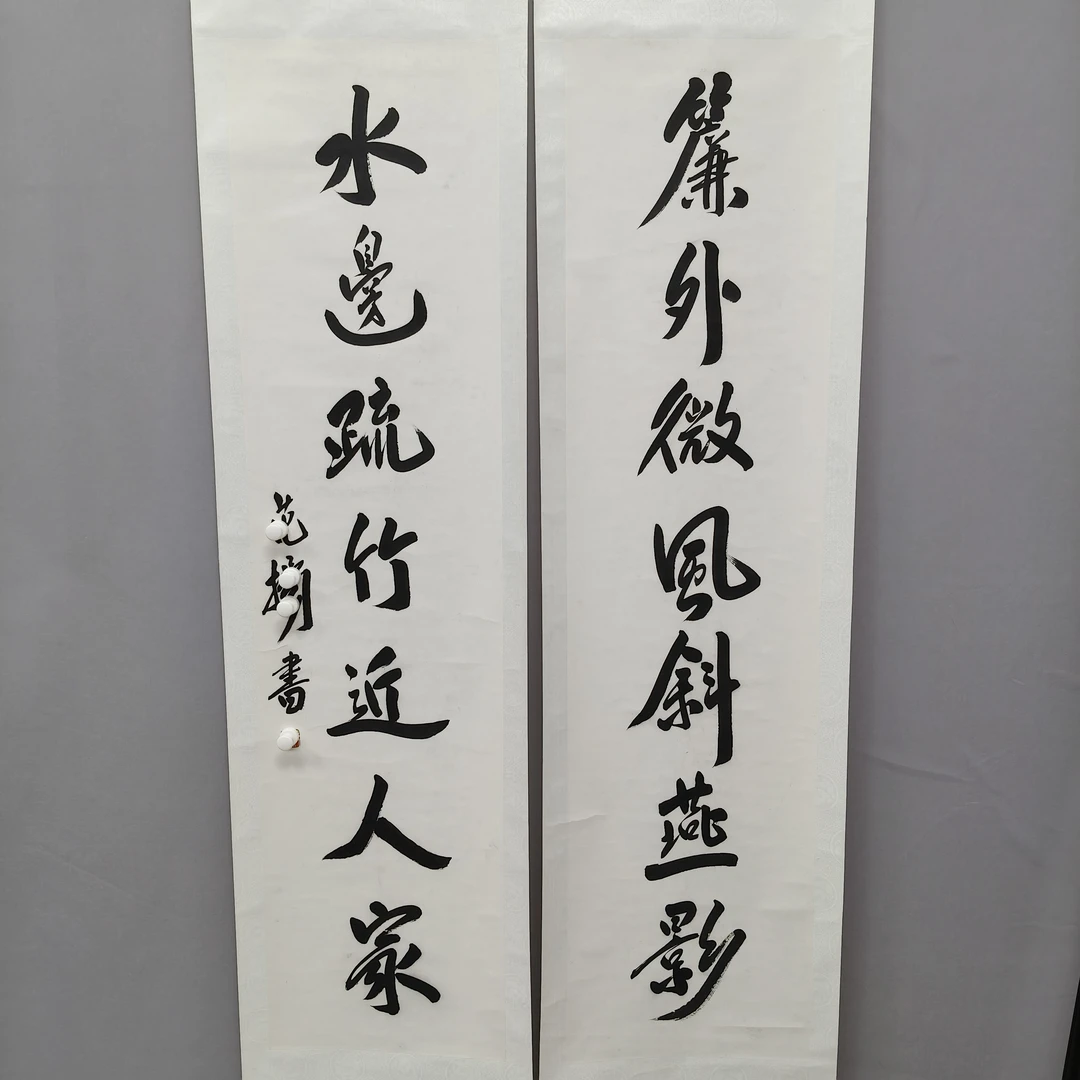 簾外微風斜燕影
水邊疏竹近人家
范書